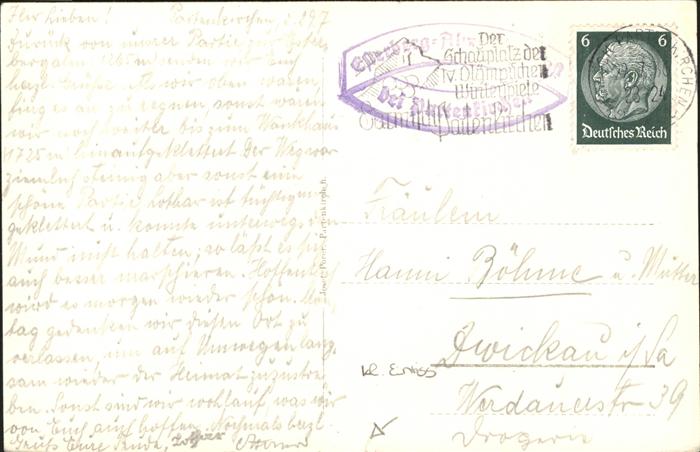 Ihr Lieben! Partenkirchen, d. 29.7
Zurück von unserer Partie zur Ester-
bergalm. übersenden wir Euch
herzl. Grüße. Als wir oben waren,
fing es an zu regnen sonst wären
wir noch weiter bis zum Wankhaus
1725 m hinaufgeklettert Der Weg war
ziemlich steinig aber sonst eine
schöne Partie. Lothar ist tüchtig mit
geklettert u. konnte unterwegs den
Mund nicht halten, so läßt es sich
auch besser marschieren. Hoffentlich
wird es morgen wieder schön.
tag gedenken wir diesen Ort zu
verlassen, um auf Umwegen lang-
sam wieder der Heimat zuzustre-
ben. Sonst sind wir wohlauf, was wir
von Euch auch hoffen. Nochmals herzl.
Eure Lothar
Esterberg-Alm
bei Partenkirchen
Der
Schauplatz der
IV. Olympischen
Winterspiele
Garmisch Partenkirchen
PARTENKIRCHEN
6 6
Deutsches Reich
Fräulein
Hanni Böhme u. Mutter
Zwickau i/Sa
Werdauerstr 39
Drogerie
kl. Einriss